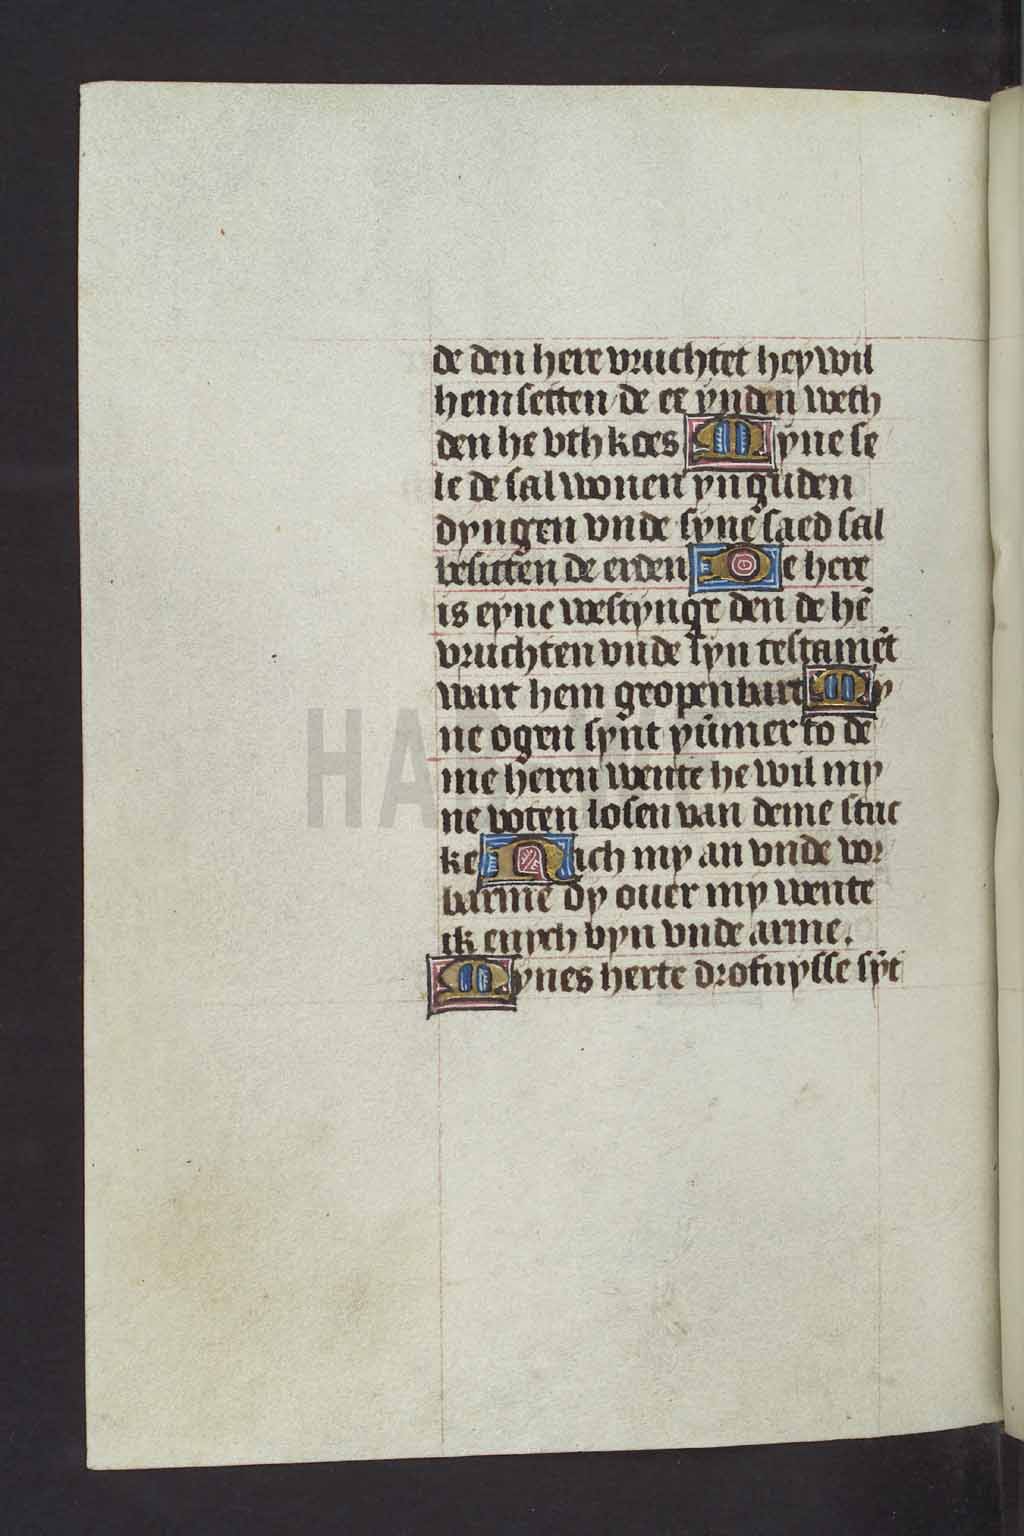 de den here vruchtet hey wil
hem setten de ee ynden weth
den he vth koes Myne se
le de sal wonen yn guden
dyngen vnde synē saed sal
besitten de erden De here
is eyne westynge den de hē
vruchten vnde syn testamēt
wart hem geopenbart My
ne ogen synt ẏūmer to de
me heren wente he wil my
ne voten losen van deme stric
ke Sich my an vnde vor
barme dy ouer my wente
ik enych byn vnde arme.
Mynes herte drofnysse sȳt